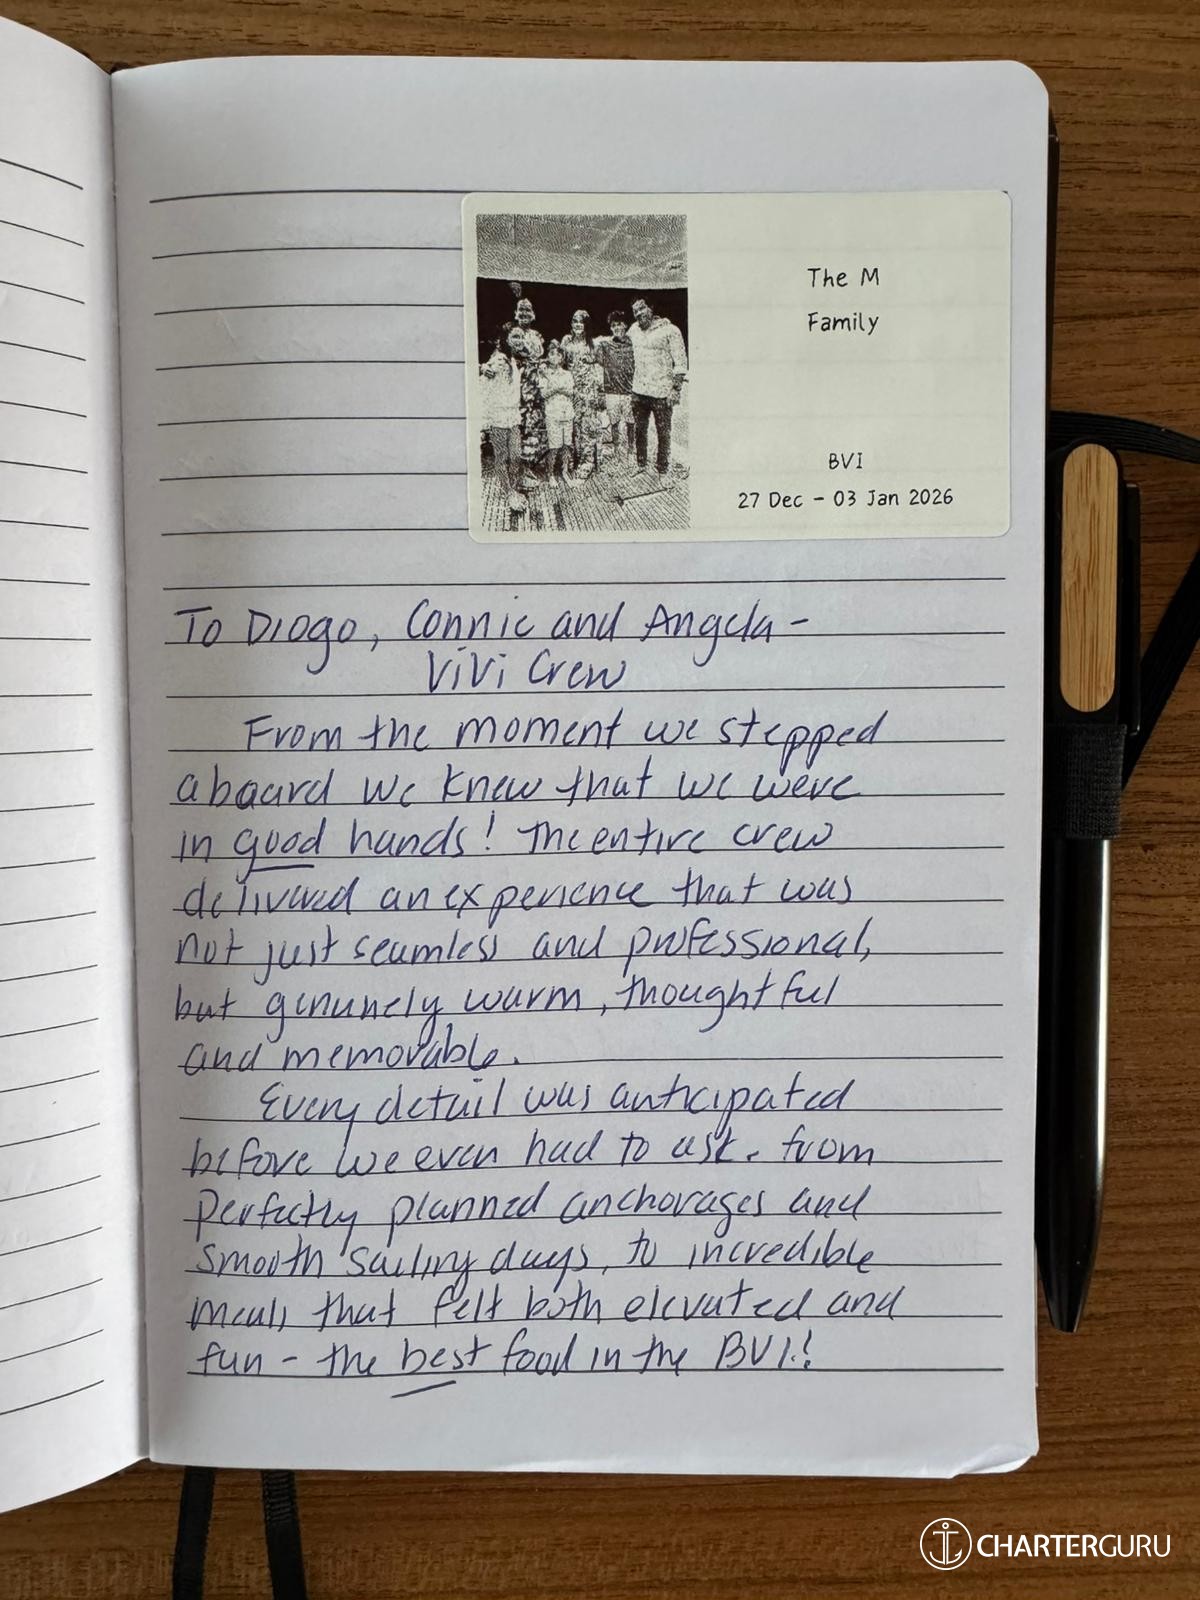 The M
Family
BVI
27 Dec - 03 Jan 2026
To Diogo, Connie and Angela -
ViVi Crew
From the moment we stepped
aboard we knew that we were
in good hands! The entire crew
delivered an experience that was
not just seamless and professional,
but genuinely warm, thoughtful
and memorable.
Every detail was anticipated
before we even had to ask. From
perfectly planned anchorages and
smooth sailing days, to incredible
meals that felt both elevated and
fun - the best food in the BVI!
CHARTERGURU